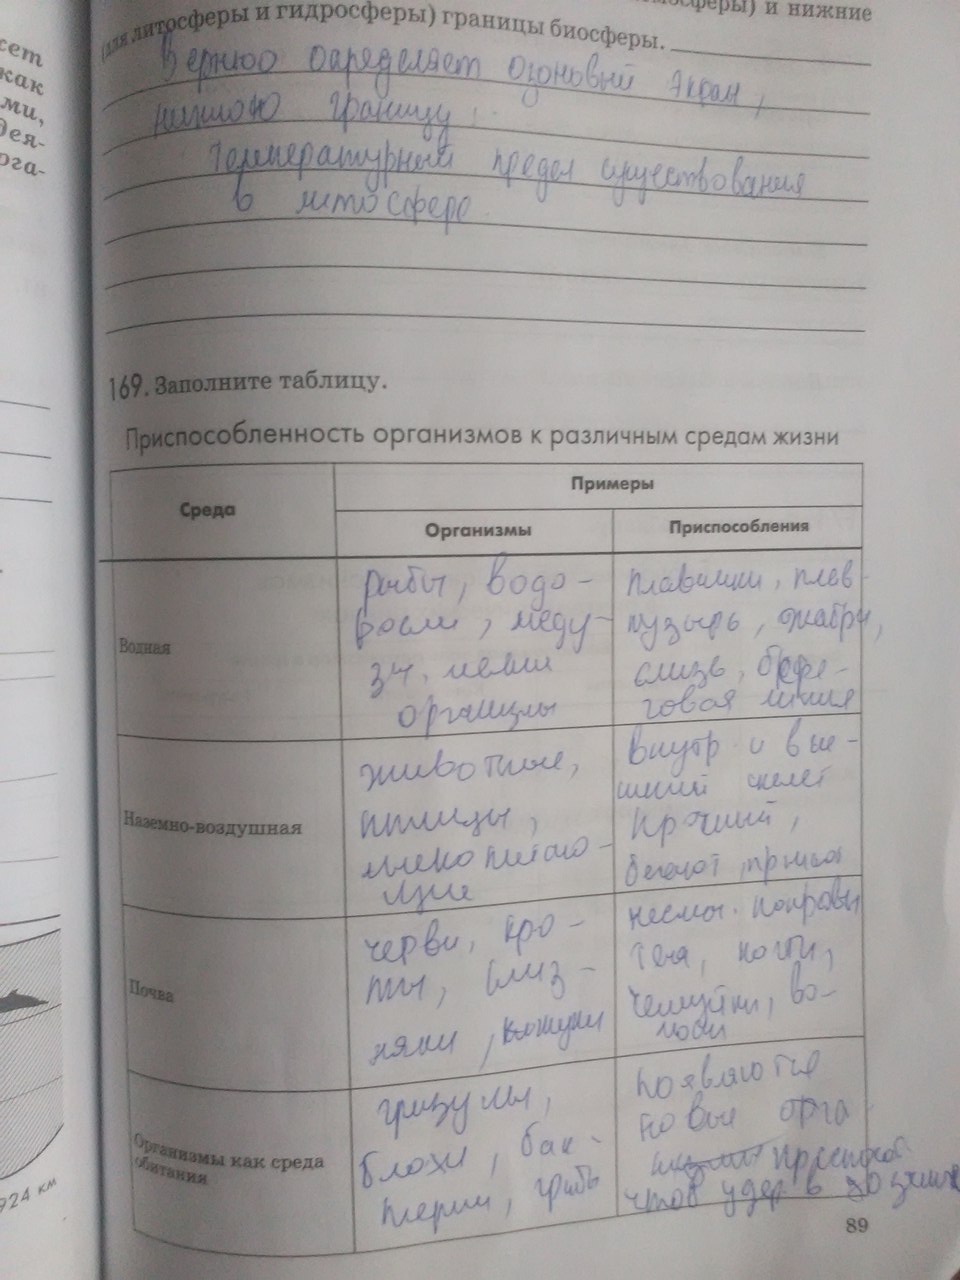 кет
как
ми,
дея-
рга-
924 км
мосферы) и нижние
(для литосферы и гидросферы) границы биосферы.
Верхнюю определяет озоновый экран,
нижнюю границу
температурный предел существования
в литосфере
169. Заполните таблицу.
Приспособленность организмов к различным средам жизни
Среда
Примеры
Организмы
Приспособления
Водная
рыбы, водо-
росли, меду-
зы,
организмы
плавники, плав-
пузырь, жабры,
слизь, боко-
говая линия
Наземно-воздушная
животные,
птицы,
млекопитаю-
щие
внутр и вне-
шний скелет
прочный,
бегают, прыжки
Почва
черви, кро-
ты, слиз-
няки,
покровы
тела, когти,
чешуйки, во-
лоски
Организмы как среда
обитания
блохи, бак-
терии, грибы
появляются
новые орга
приспособ
чтоб удер в хозяине
89